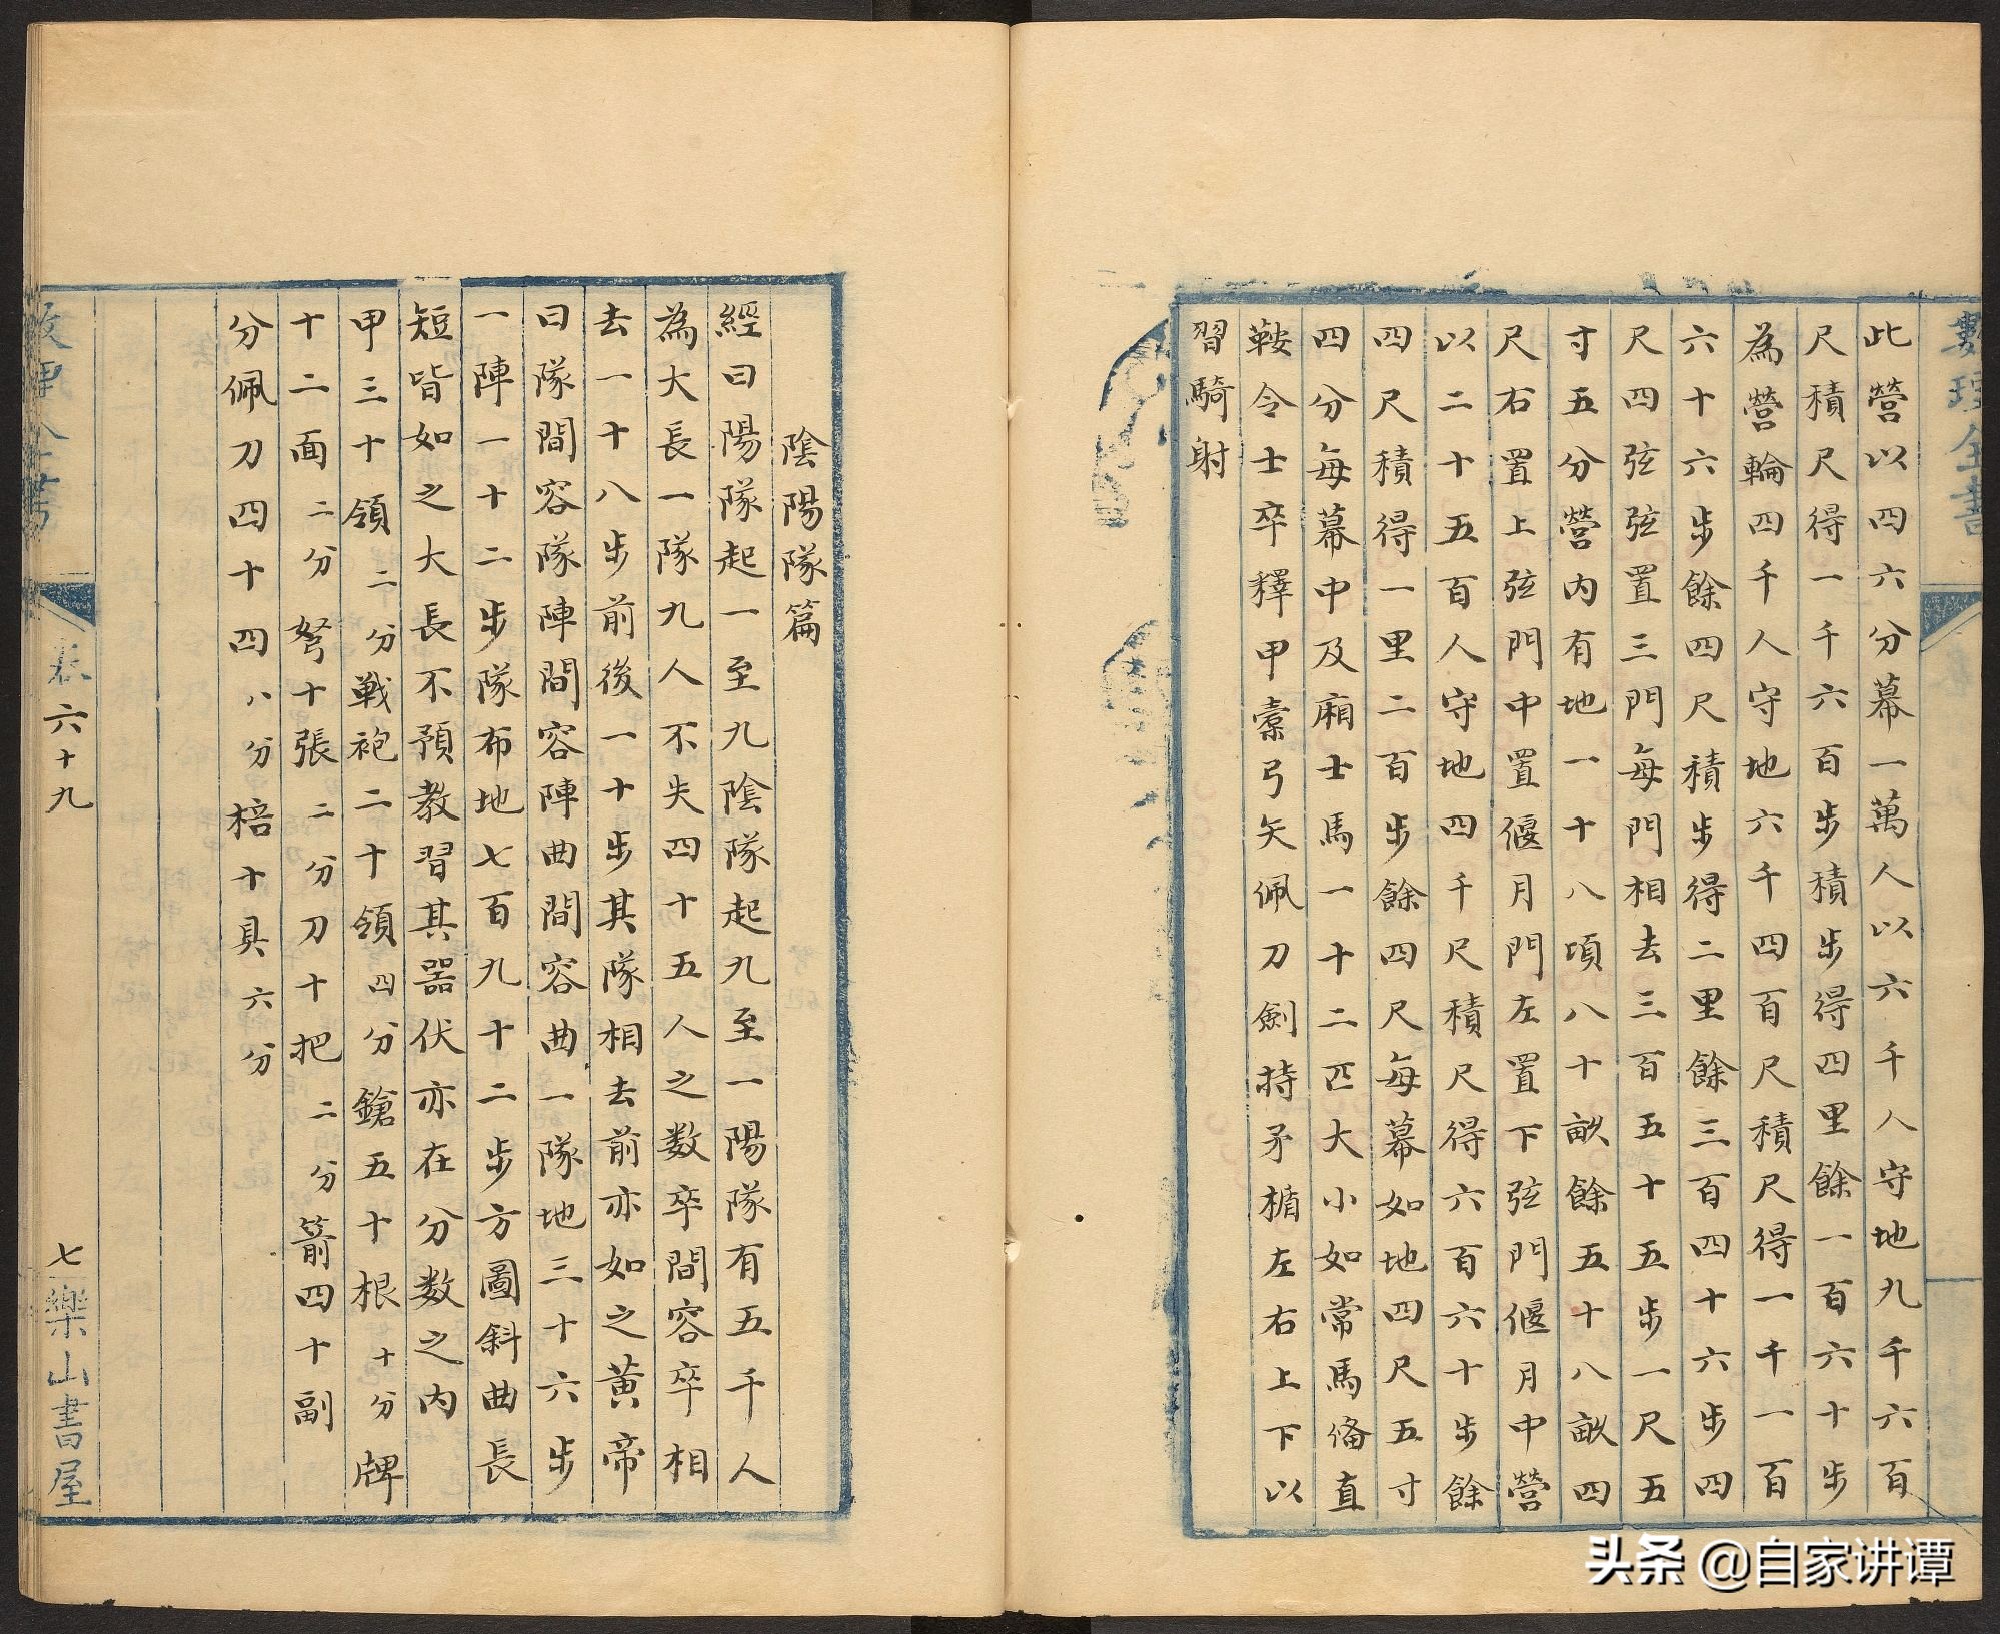 數理全書
此營以四六分幕一萬人以六千人守地九千六百
尺積尺得一千六百步積步得四里餘一百六十步
為營輪四千人守地六千四百尺積尺得一千一百
六十六步餘四尺積步得二里餘三百四十六步四
尺四弦弦置三門每門相去三百五十五步一尺五
寸五分營内有地一十八項八十畝餘五十八畝四
尺右置上弦門中置偃月門左置下弦門偃月中營
以二十五百人守地四千尺積尺得六百六十步餘
四尺積得一里二百步餘四尺每幕如地四尺五寸
四分每幕中及廂士馬一十二匹大小如常馬俻直
鞍令士卒釋甲櫜弓矢佩刀劍持矛楯左右上下以
習騎射
陰陽隊篇
經曰陽隊起一至九陰隊起九至一陽隊有五千人
為大長一隊九人不失四十五人之数卒間容卒相
去一十八步前後一十步其隊相去前亦如之黄帝
曰隊間容隊陣間容陣曲間容曲一隊地三十六步
一陣一十二步隊布地七百九十二步方圖斜曲長
短皆如之大長不預教習其器伏亦在分数之内
甲三十領二分戰袍二十領四分鎗五十根十分牌
十二面二分弩十張二分刀十把二分箭四十副
分佩刀四十四八分棓十具六分
卷六十九
七
樂山書屋
头条 @自家讲谭